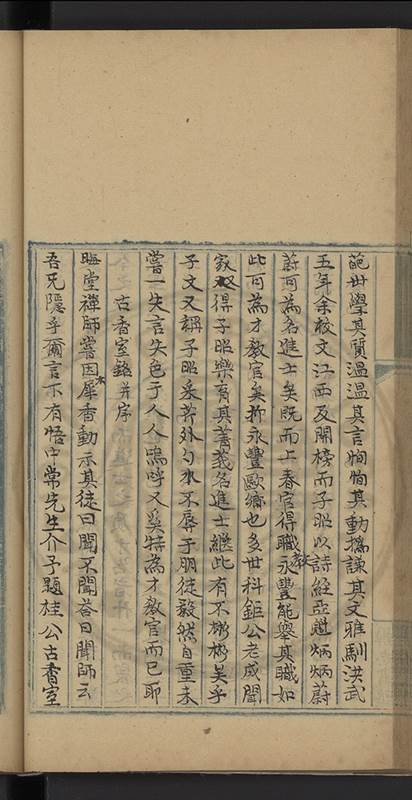 葩世學其質溫溫其言恂恂其動撝謙其文雅馴洪武
五年余校文江西及開榜而子昭以詩經亞魁炳炳蔚
蔚可為名進士矣既而上春官得職教永豐能舉其職如
此可為才教官矣抑永豐歐鄉也多世科鉅公老成聞
家必得子昭樂育其菁莪名進士繼此有不彬彬矣乎
子文又謂子昭采芹外勺水不辱于朋徒毅然自重未
嘗一失言失色于人人嗚呼又奚特為才教官而已耶
古香室銘并序
晦堂禪師嘗因木犀香動示其徒曰聞不聞荅曰聞師云
吾无隱乎爾言下有悟中常先生介予題桂公古香室